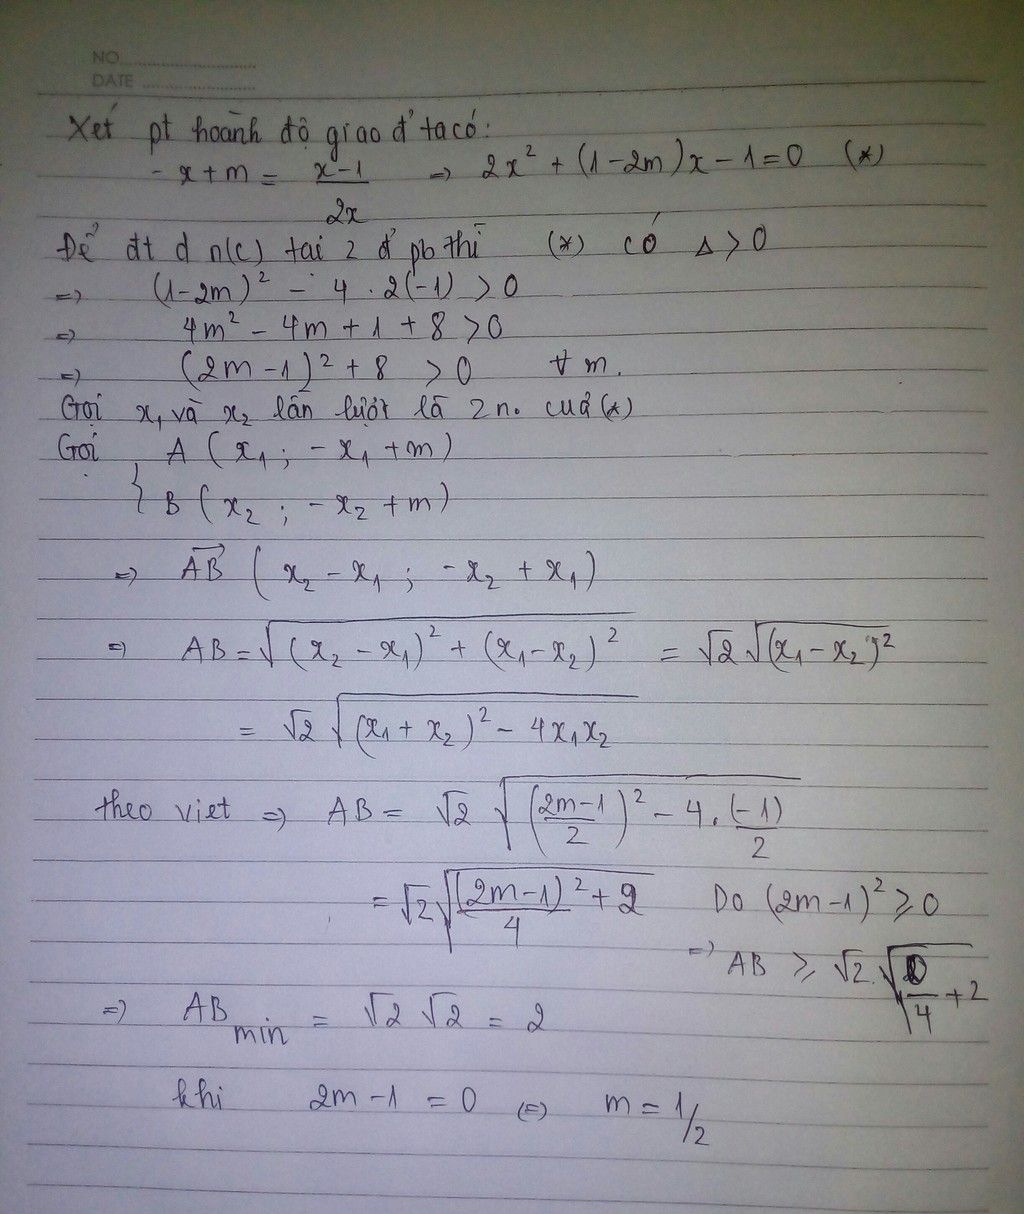 NO
DATE
Xét pt hoành độ giao đ' ta có:
- x + m = \frac{x-1}{2x} => 2x² + (1-2m)x - 1 = 0 (*)
Để đt d ∩(C) tại 2 đ' pb thì (*) có Δ > 0
=> (1-2m)² - 4 . 2(-1) > 0
=> 4m² - 4m + 1 + 8 > 0
=> (2m-1)² + 8 > 0 ∀ m.
Gọi x₁ và x₂ lần lượt là 2 n₀ của (*)
Gọi { A ( x₁ ; - x₁ + m)
B ( x₂ ; - x₂ + m)
=> \overrightarrow{AB} ( x₂ - x₁ ; - x₂ + x₁ )
=> AB = \sqrt{(x₂ - x₁)² + (x₁ - x₂)²} = √2 \sqrt{(x₁ - x₂)²}
= √2 \sqrt{(x₁ + x₂)² - 4x₁x₂}
theo viet => AB = √2 \sqrt{(\frac{2m-1}{2})² - 4 . \frac{(-1)}{2}}
= √2 \sqrt{\frac{(2m-1)²}{4} + 2} Do (2m-1)² ≥ 0
=> AB ≥ √2 . \sqrt{\frac{0}{4} + 2}
=> AB min = √2 √2 = 2
khi 2m - 1 = 0 (=) m = 1/2